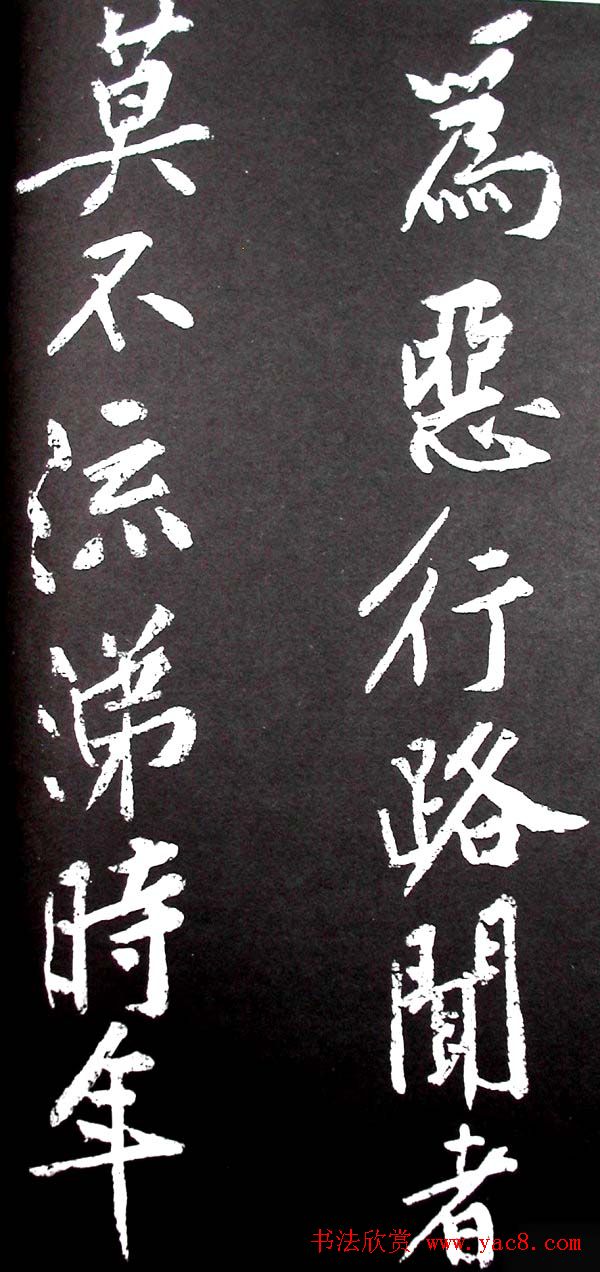 為惡行路聞者
莫不流涕時年
书法欣赏 www.yac8.com